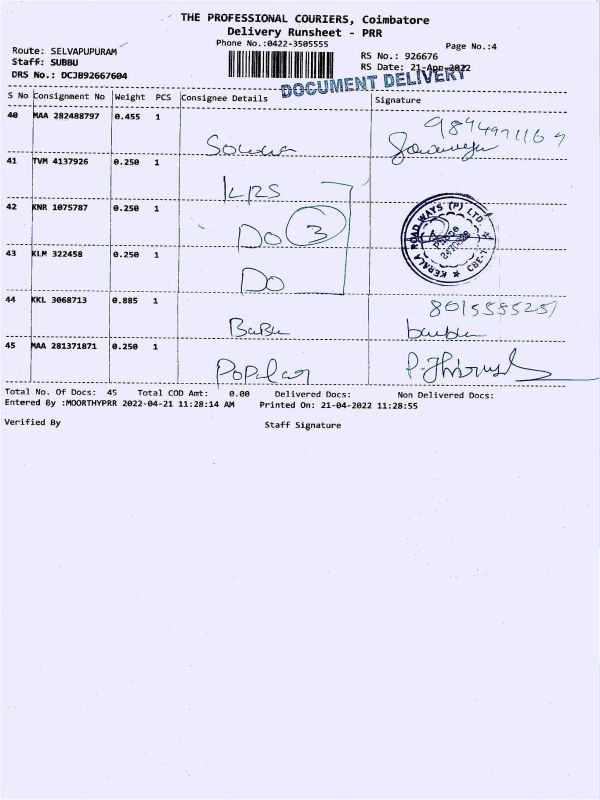 THE PROFESSIONAL COURIERS, Coimbatore
Delivery Runsheet - PRR
Phone No.:0422-3505555
Page No.:4
Route: SELVAPUPURAM
Staff: SUBBU
DRS No.: DCJB92667604
RS No.: 926676
RS Date: 21-Apr-2022
DOCUMENT DELIVERY
S No Consignment No Weight PCS Consignee Details Signature
40 MAA 282488797 0.455 1
41 TVM 4137926 0.250 1
KRS
42 KNR 1075787 0.250 1
Do 3
KERALA ROAD WAYS (P) LTD
43 KLM 322458 0.250 1
Do
44 KKL 3068713 0.885 1
Babu
45 MAA 281371871 0.250 1
Popular
Total No. Of Docs: 45 Total COD Amt: 0.00 Delivered Docs: Non Delivered Docs:
Entered By :MOORTHYPRR 2022-04-21 11:28:14 AM Printed On: 21-04-2022 11:28:55
Verified By Staff Signature